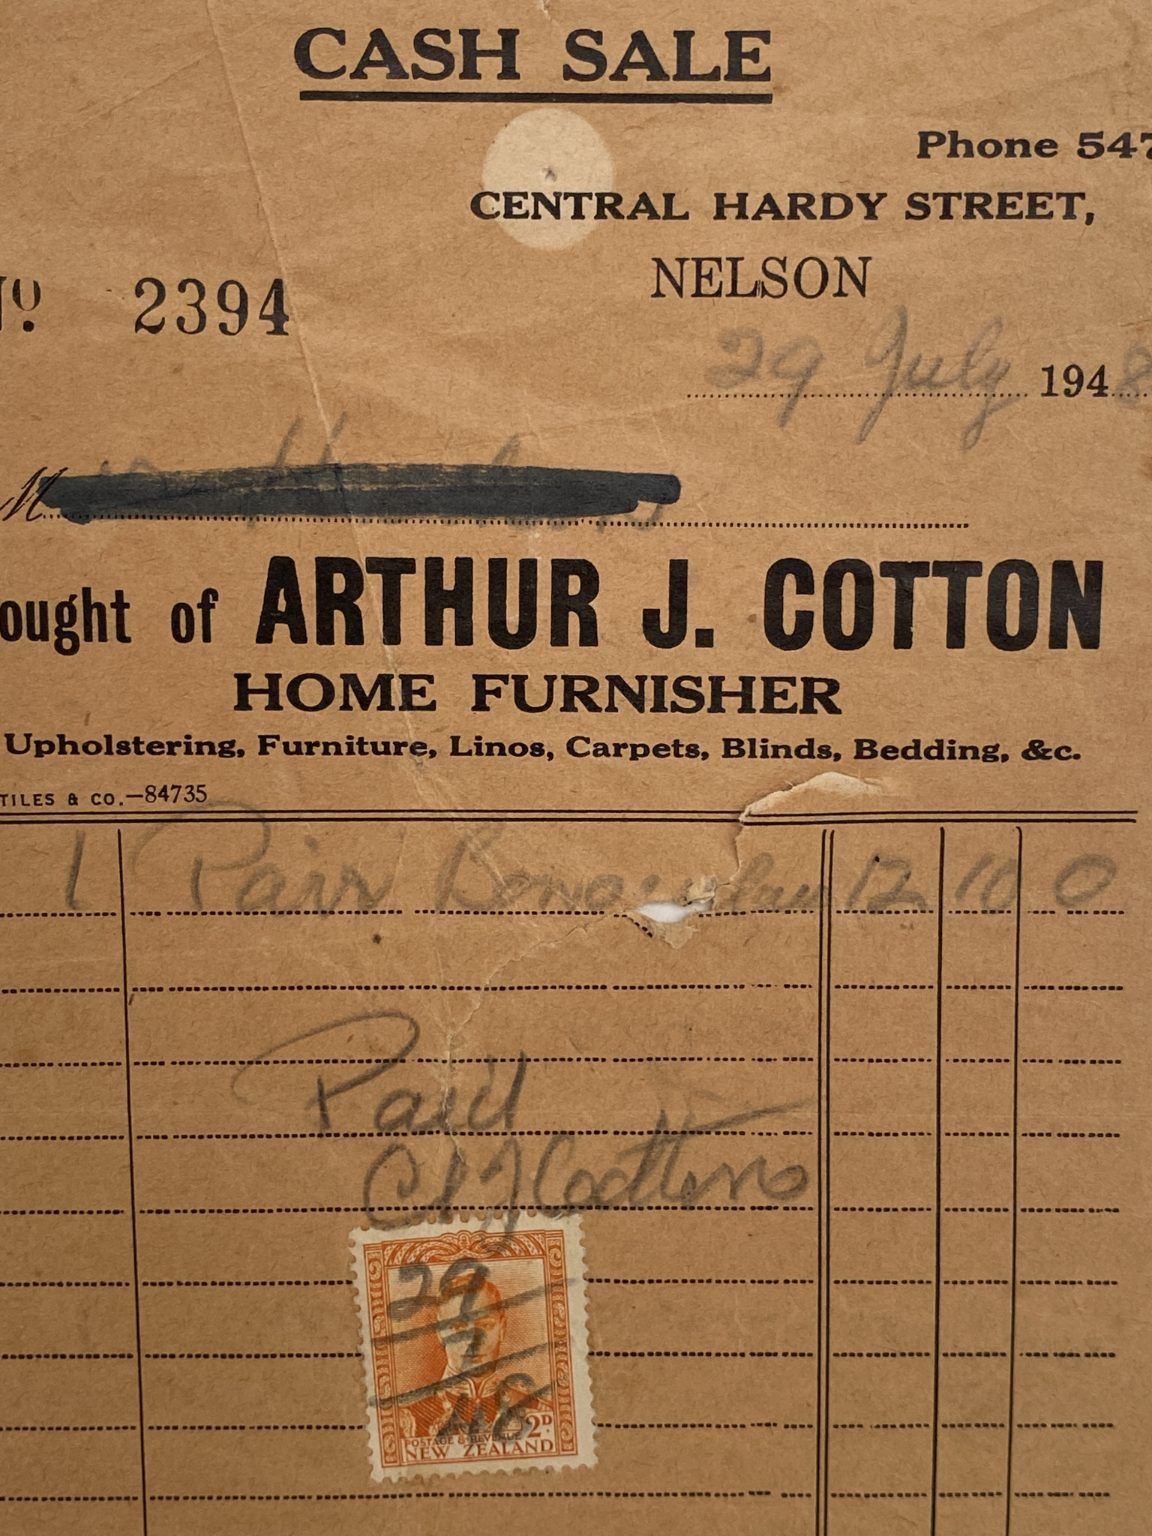 CASH SALE
Phone 547
CENTRAL HARDY STREET,
NELSON
No. 2394
29 July 1948
M
ought of ARTHUR J. COTTON
HOME FURNISHER
Upholstering, Furniture, Linos, Carpets, Blinds, Bedding, &c.
TILES & CO.—84735
1 Pair 12 10 0
Paid
29
7
48
2D
POSTAGE & REVENUE
NEW ZEALAND